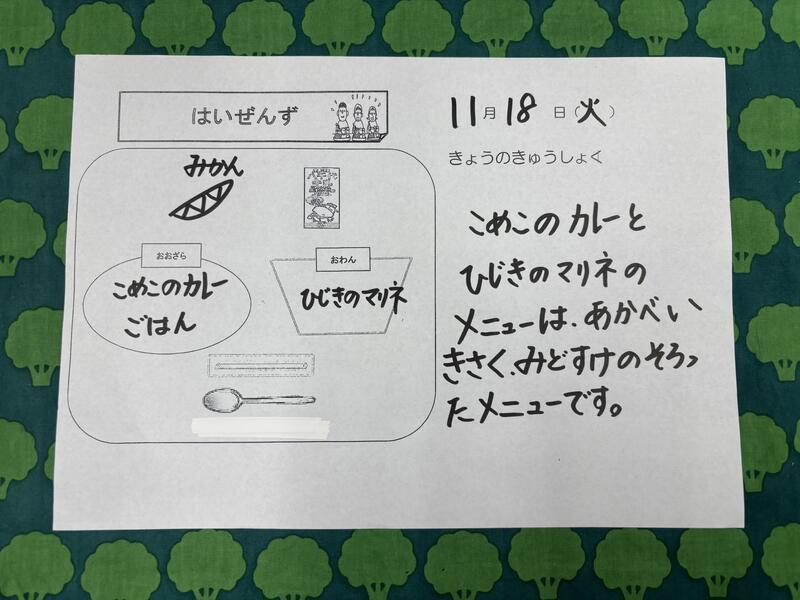 はいぜんず
みかん
おおざら
こめこのカレー
ごはん
おわん
ひじきのマリネ
11月18日(火)
きょうのきゅうしょく
こめこのカレーと
ひじきのマリネの
メニューは、あかべい
きさく、みどすけのそろっ
たメニューです。